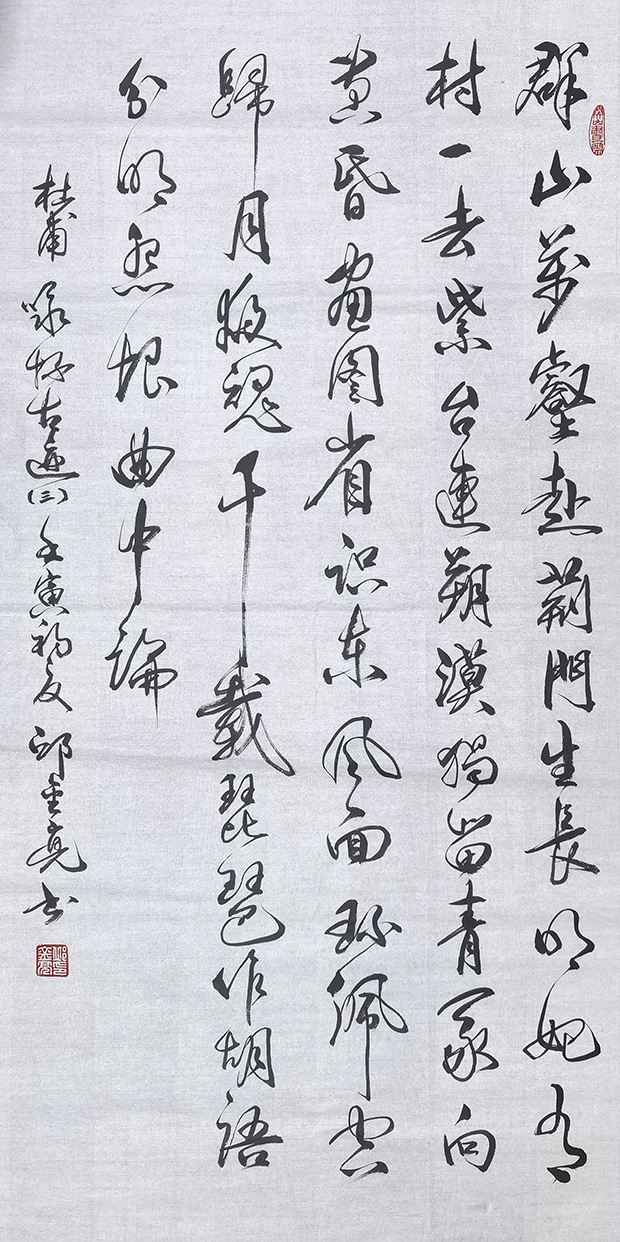 群山萬壑赴荊門生長明妃有
村一去紫台連朔漠獨留青冢向
黄昏画图省识东风面环佩空
歸月夜魂千載琵琶作胡語
分明怨恨曲中論
杜甫 咏怀古迹(三) 壬寅初夏 邱金亮书